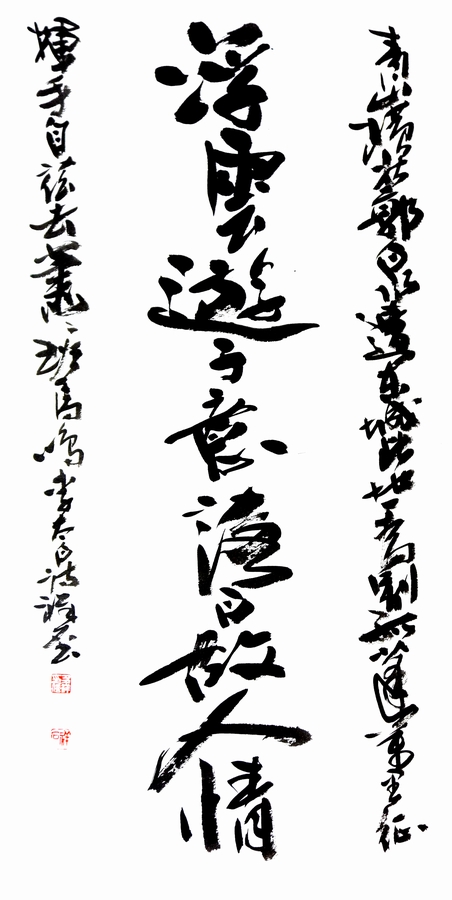 青山橫北郭白水遶東城此地一為別孤蓬萬里征
浮雲遊子意落日故人情
揮手自茲去蕭々班馬鳴李太白詩